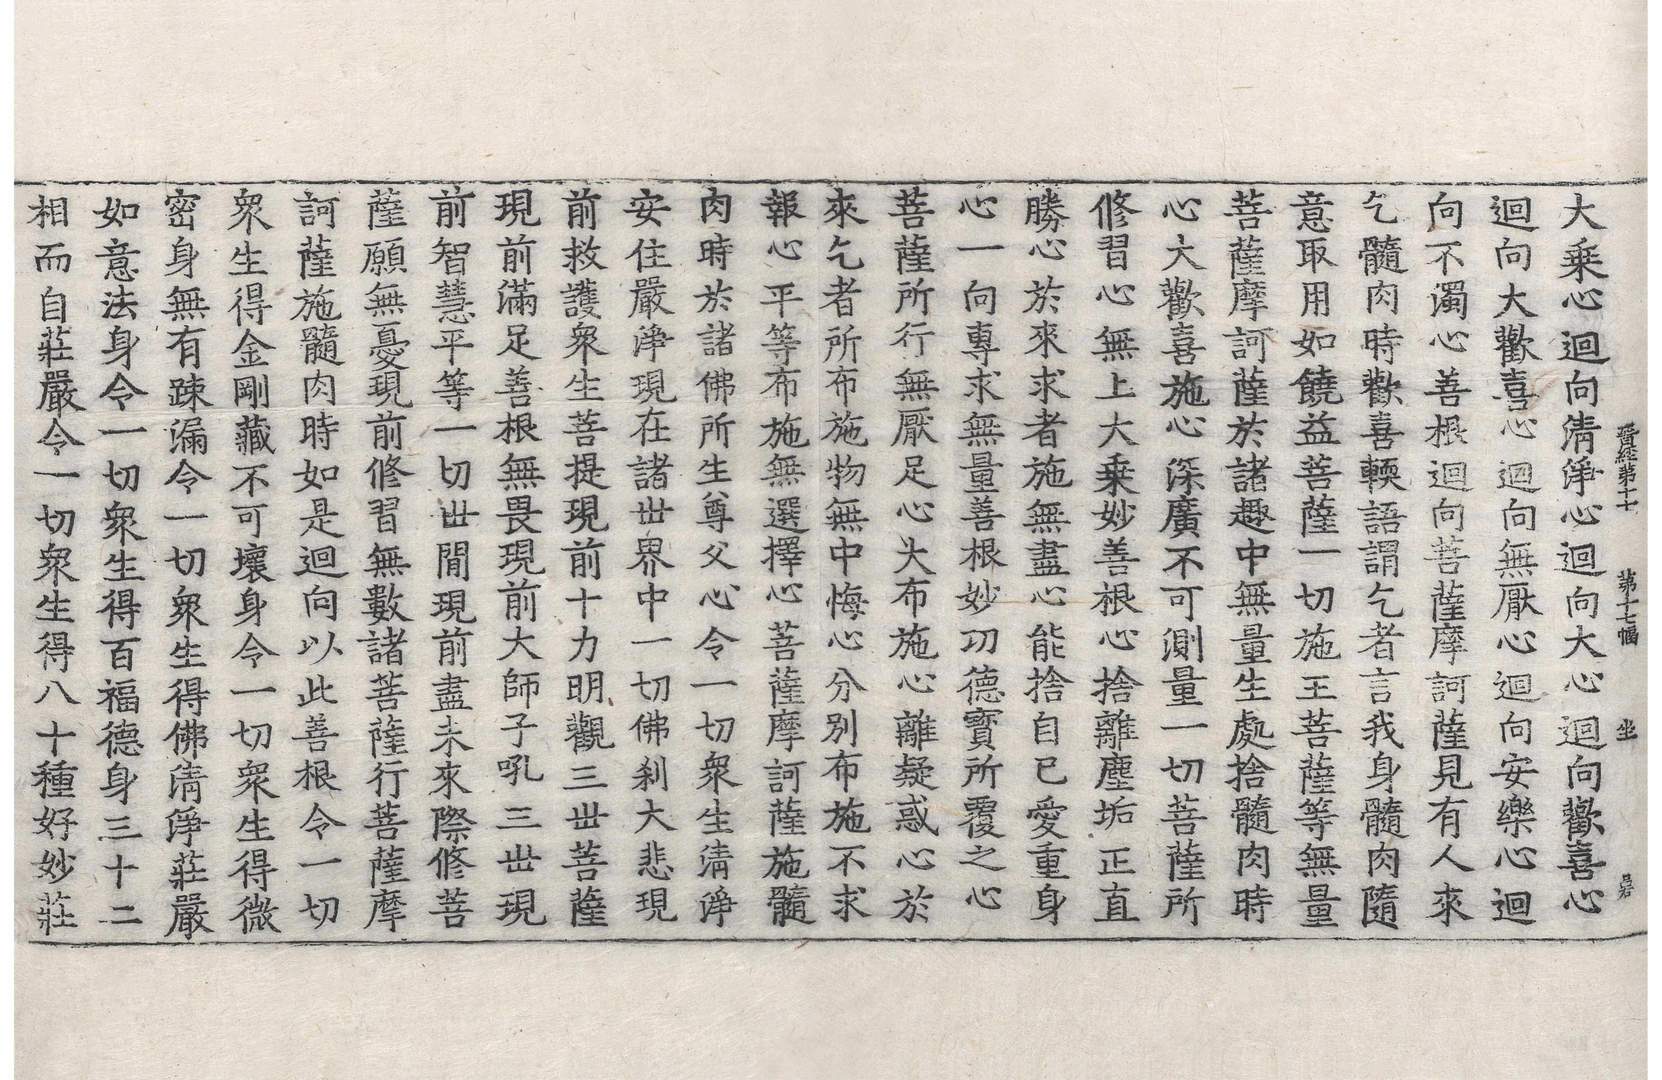 晋經第十七　第十七幅　坐
大乗心迴向清淨心迴向大心迴向歡喜心
迴向大歡喜心迴向無厭心迴向安樂心迴
向不濁心善根迴向菩薩摩訶薩見有人來
乞髓肉時歡喜輭語謂乞者言我身髓肉隨
意取用如饒益菩薩一切施王菩薩等無量
菩薩摩訶薩於諸趣中無量生處捨髓肉時
心大歡喜施心深廣不可測量一切菩薩所
修習心無上大乗妙善根心捨離塵垢正直
勝心於來求者施無盡心能捨自已愛重身
心一向專求無量善根妙功德寳所覆之心
菩薩所行無厭足心大布施心離疑惑心於
來乞者所布施物無中悔心分別布施不求
報心平等布施無選擇心菩薩摩訶薩施髓
肉時於諸佛所生尊父心令一切衆生清淨
安住嚴淨現在諸世界中一切佛刹大悲現
前救護衆生菩提現前十力明觀三世菩薩
現前滿足善根無畏現前大師子吼三世現
前智慧平等一切世間現前盡未來際修菩
薩願無憂現前修習無數諸菩薩行菩薩摩
訶薩施髓肉時如是迴向以此善根令一切
衆生得金剛藏不可壞身令一切衆生得微
密身無有踈漏令一切衆生得佛清淨莊嚴
如意法身令一切衆生得百福德身三十二
相而自莊嚴令一切衆生得八十種好妙莊